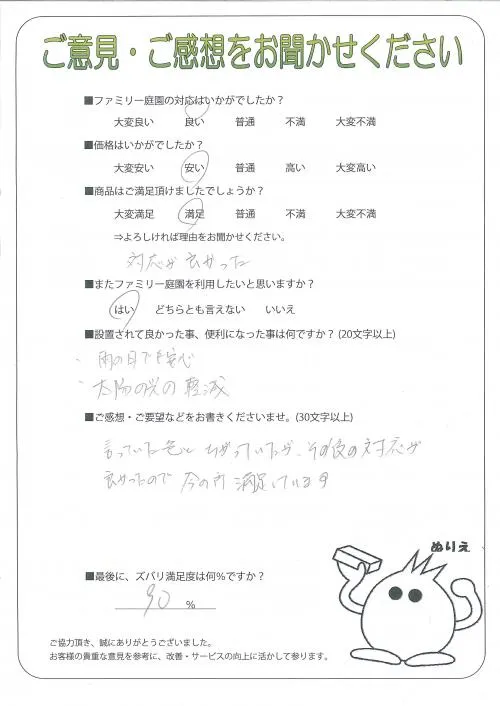 ご意見・ご感想をお聞かせください
■ファミリー庭園の対応はいかがでしたか？
大変良い 良い 普通 不満 大変不満
■価格はいかがでしたか？
大変安い 安い 普通 高い 大変高い
■商品はご満足頂けましたでしょうか？
大変満足 満足 普通 不満 大変不満
⇒よろしければ理由をお聞かせください。
対応が良かった
■またファミリー庭園を利用したいと思いますか？
はい どちらとも言えない いいえ
■設置されて良かった事、便利になった事は何ですか？(20文字以上)
・雨の日でも安心
・太陽の光の軽減
■ご感想・ご要望などをお書きくださいませ。(30文字以上)
言っていた色と ちがっていたが、その後の対応が
良かったので 今の所 満足しています
ぬりえ
■最後に、ズバリ満足度は何％ですか？
90 ％
ご協力頂き、誠にありがとうございました。
お客様の貴重な意見を参考に、改善・サービスの向上に活かして参ります。